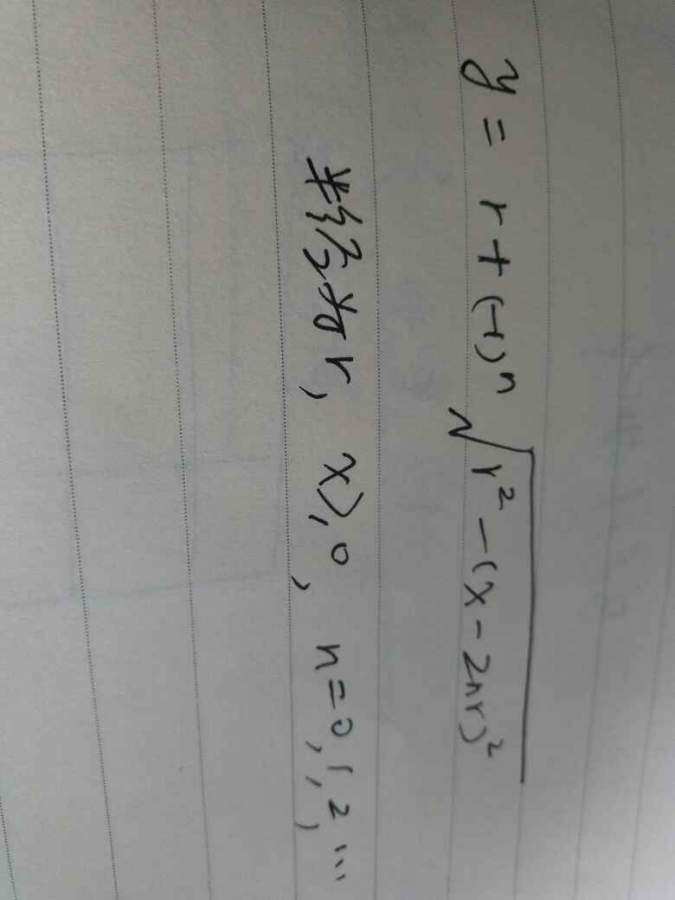 y = r + (-1)ⁿ √(r² - (x - 2nr)²)
半径为r, x≥0, n=0,1,2,...